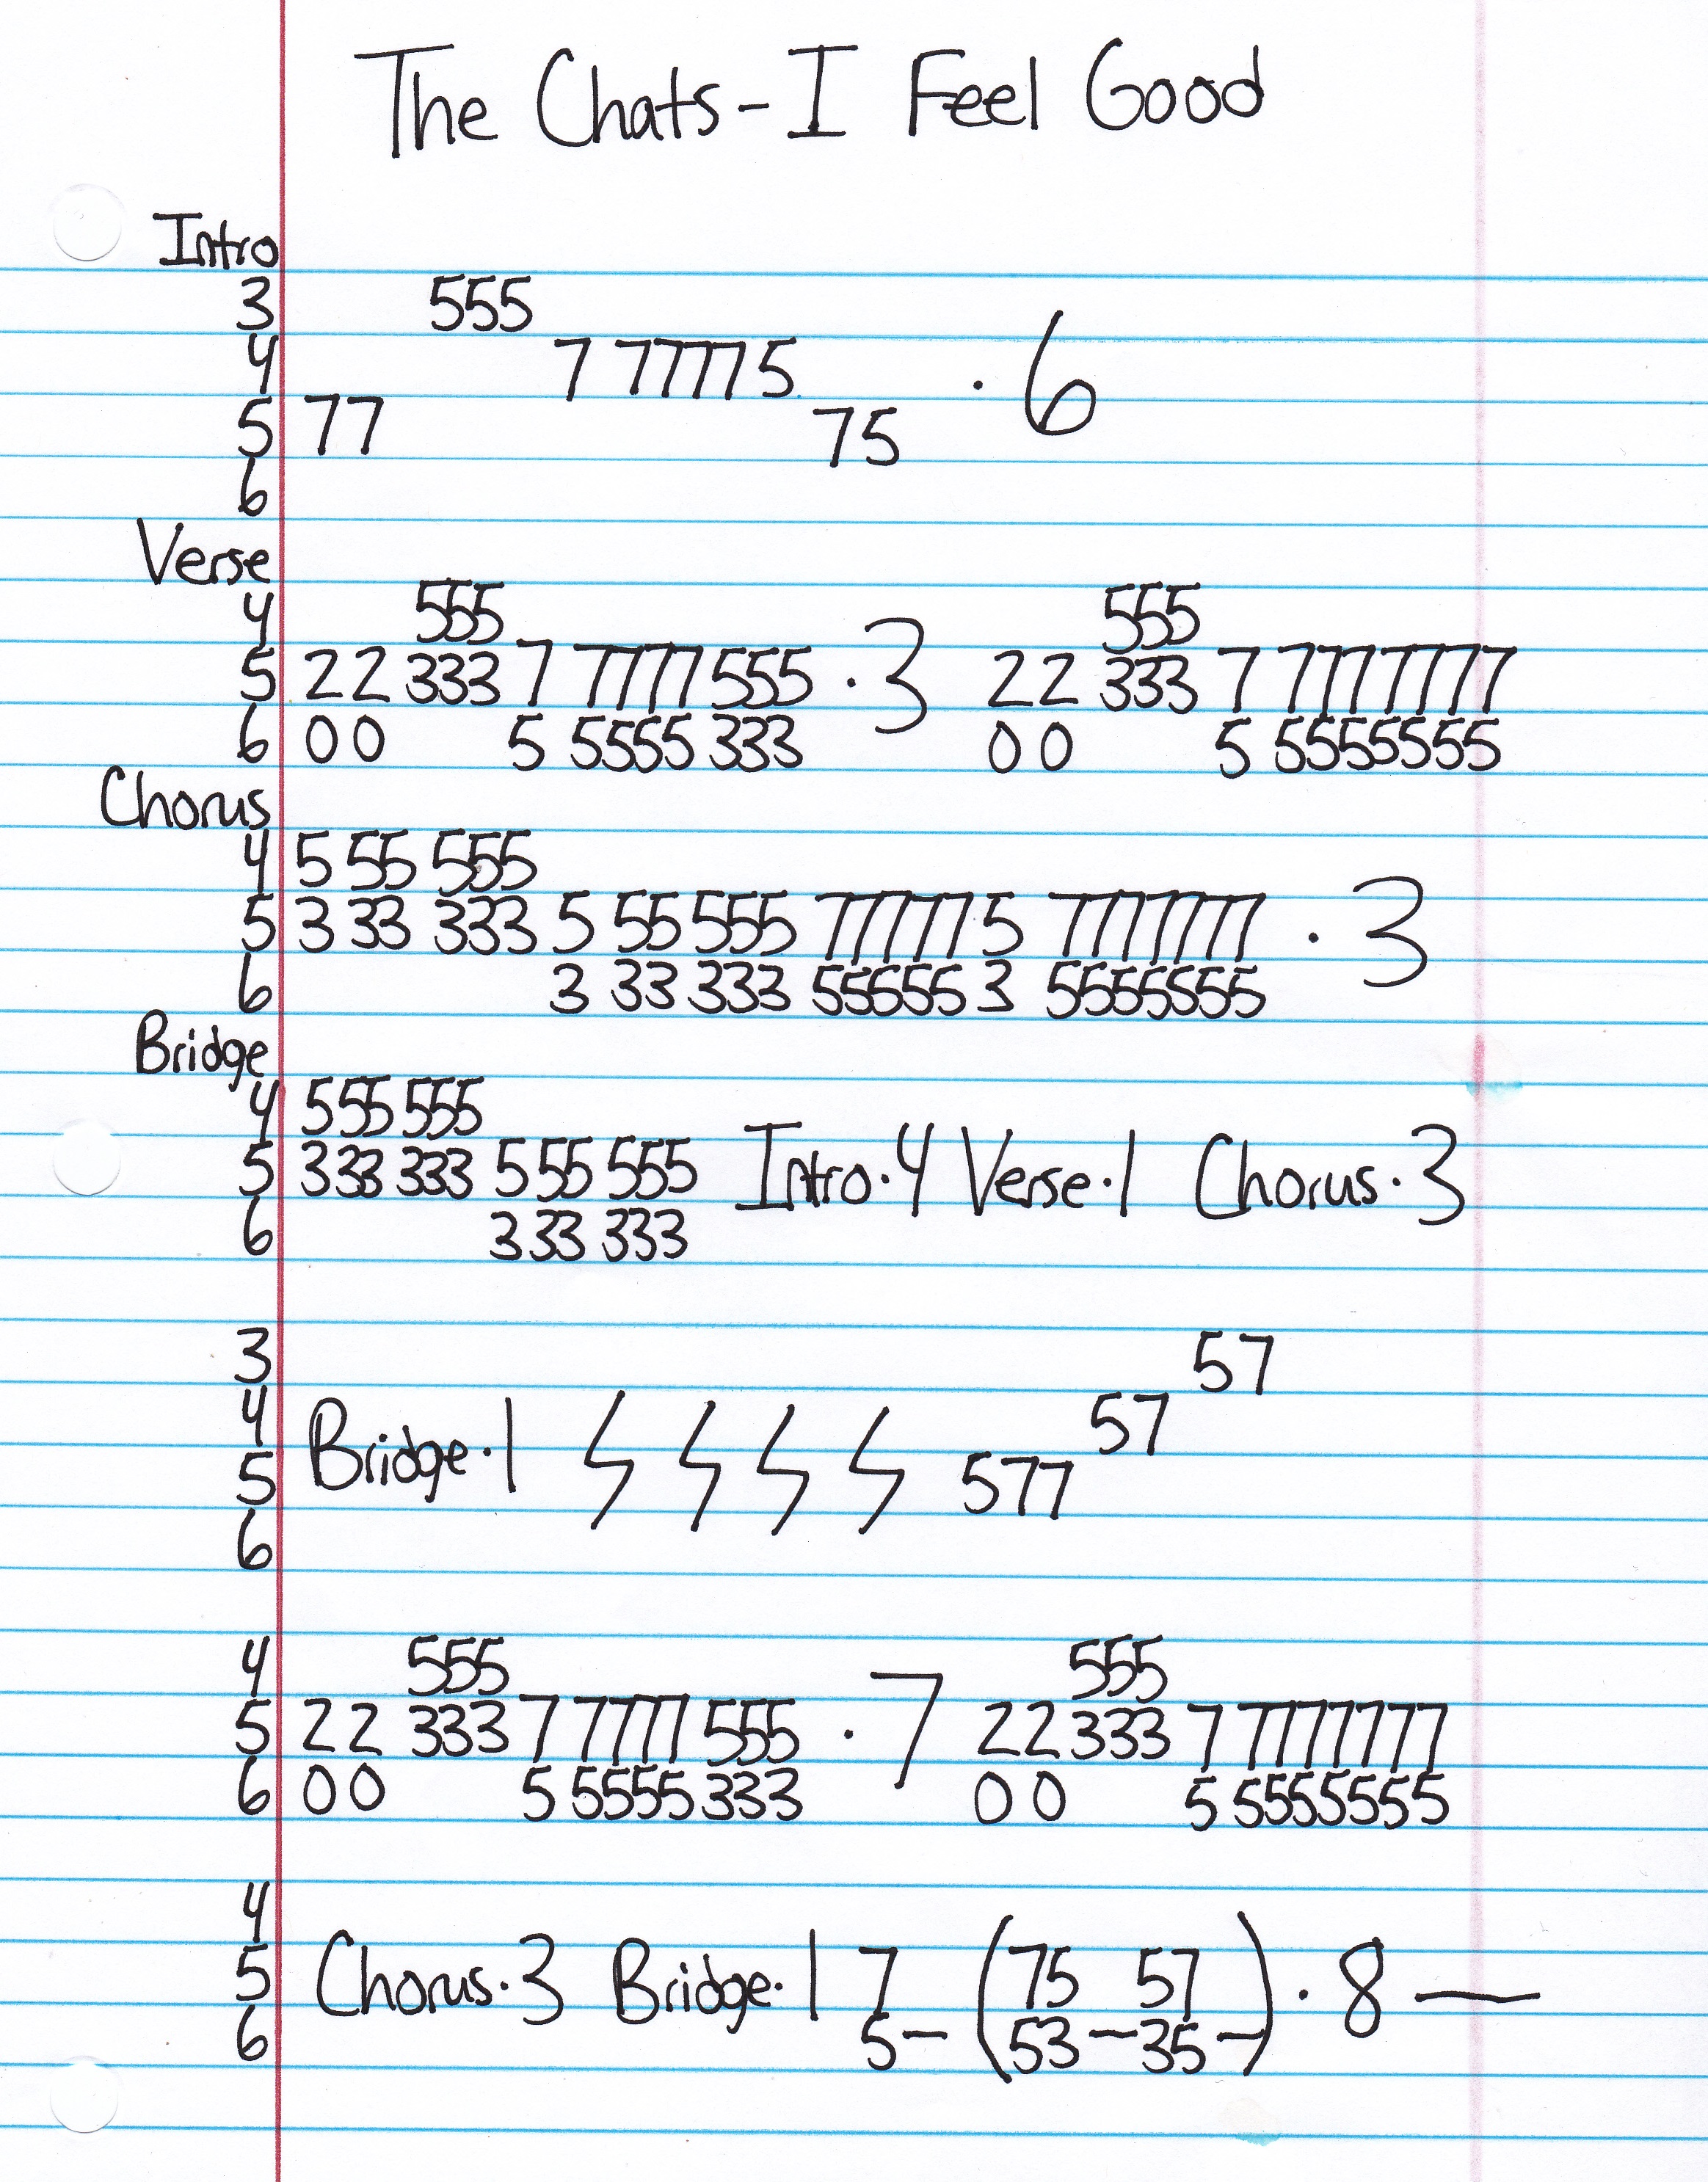 The Chats - I Feel Good
Intro
3 555
4 7 77775 · 6
5 77 75
6
Verse
4 555 555
5 22 333 7 7777 555 · 3 22 333 7 7777777
6 00 5 5555 333 00 5 5555555
Chorus
4 5 55 555
5 3 33 333 5 55 555 77777 5 7777777 · 3
6 3 33 333 55555 3 5555555
Bridge
4 555 555
5 333 333 5 55 555 Intro · 4 Verse · 1 Chorus · 3
6 3 33 333
3 57
4 57
5 Bridge · 1 577
6
4 555 555
5 22 333 7 7777 555 · 7 22 333 7 7777777
6 00 5 5555 333 00 5 5555555
4
5 Chorus · 3 Bridge · 1 7 (75 57) · 8 —
6 5 – 53 – 35 –